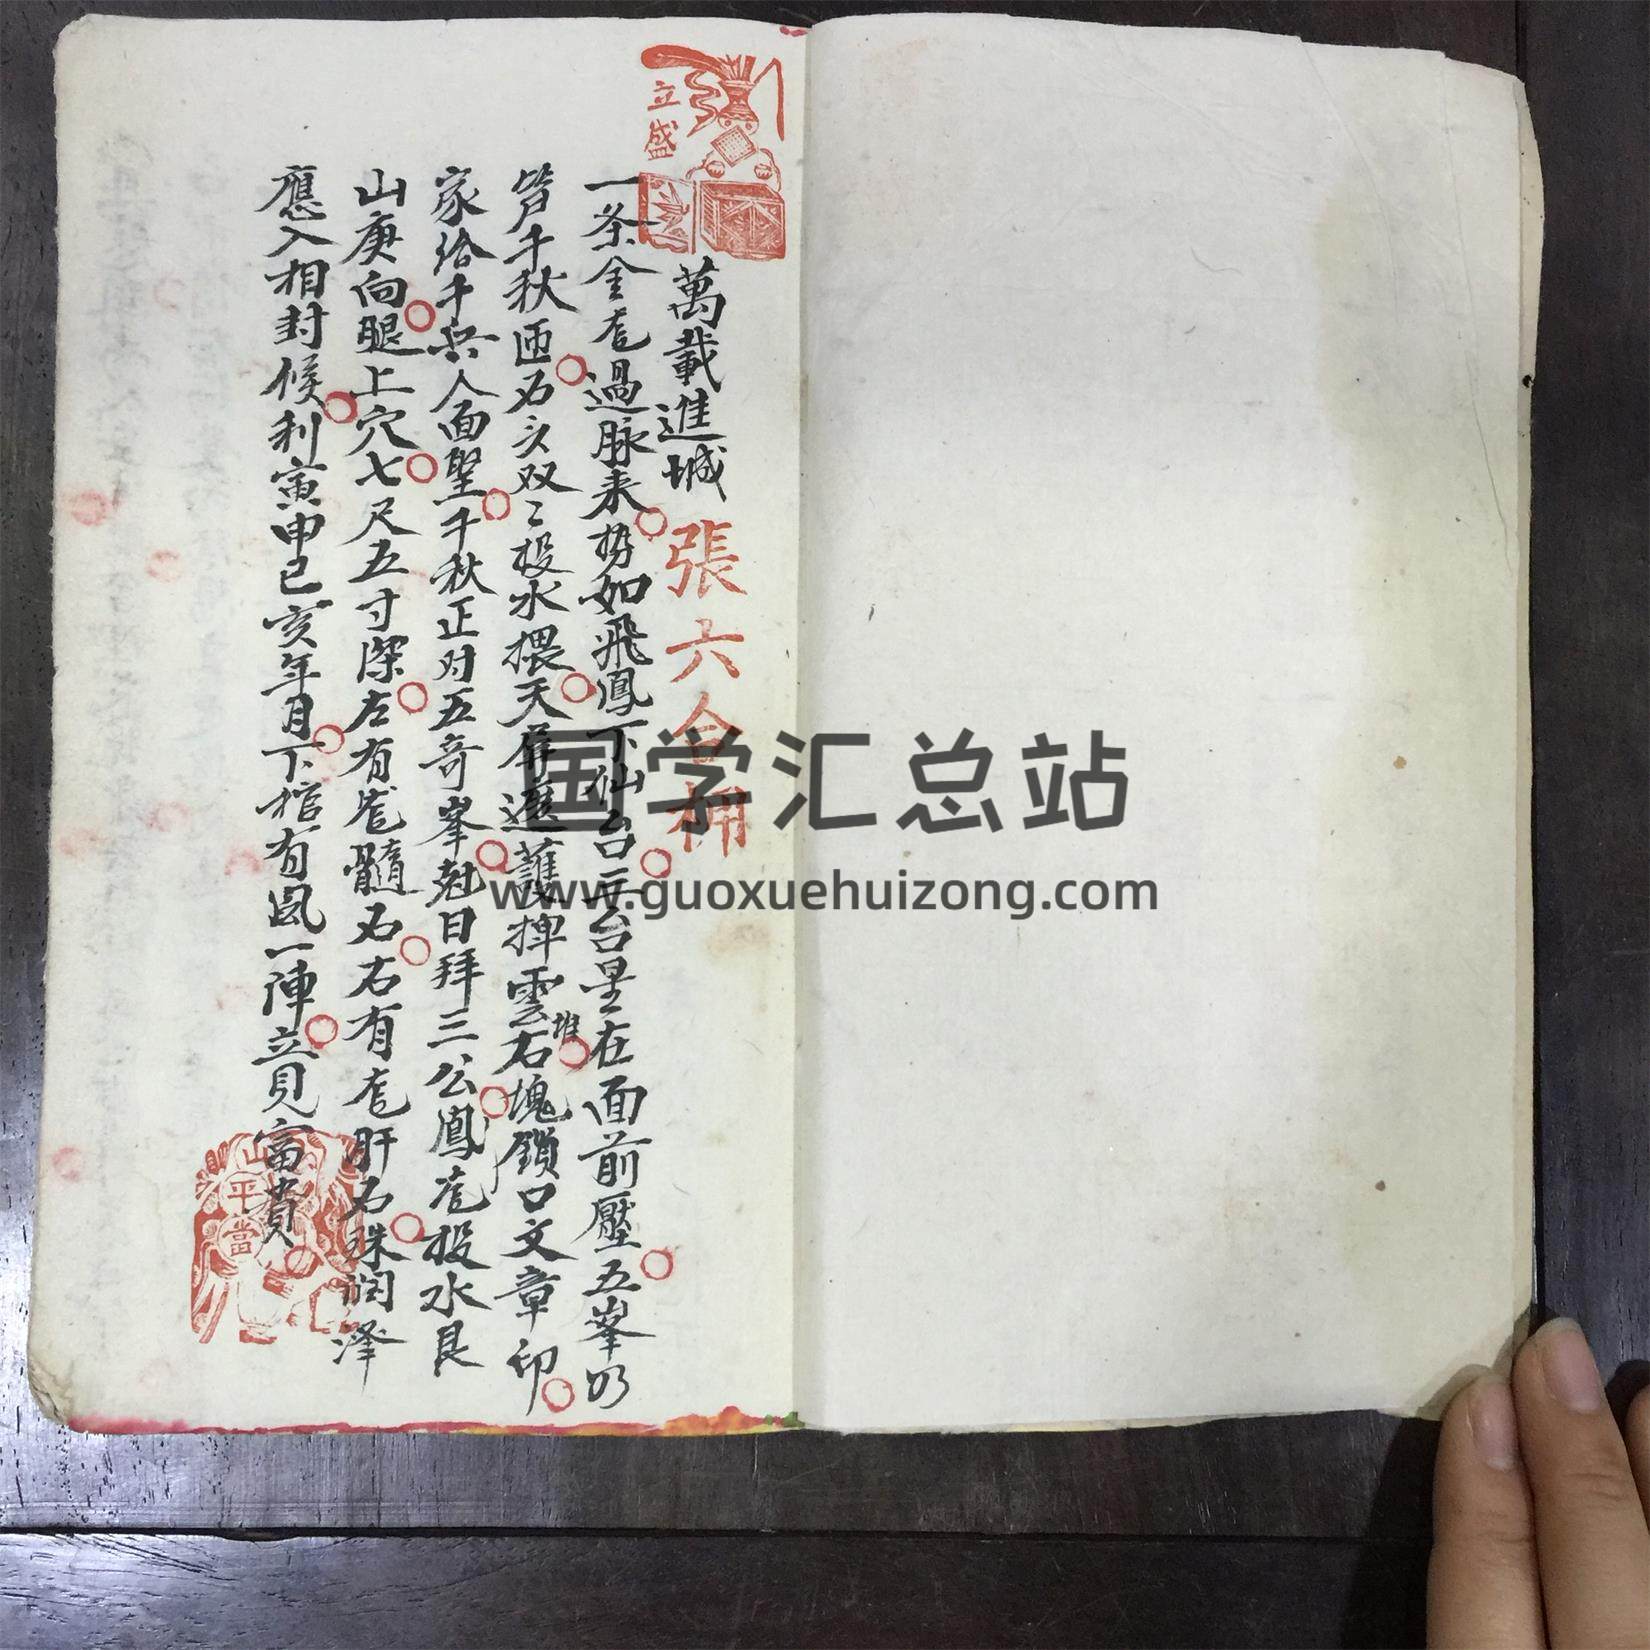 立盛
萬載進城 張六合
一条金龙過脉来势如飛鳳下仙台三台星在面前壓五峯乃
笋千秋西为文双〻投水揋天屏遮護捍雲右塊鎖口文章印
堆
家给千兵人面墾千秋正对五奇峯尅日拜三公鳳龙投水艮
山庚向腿上穴七尺五寸深左有龙髓石右有龙肝石珠润澤
應入相封候利寅申巳亥年月下棺有風一陣立見富貴
山平當
国学汇总站
www.guoxuehuizong.com